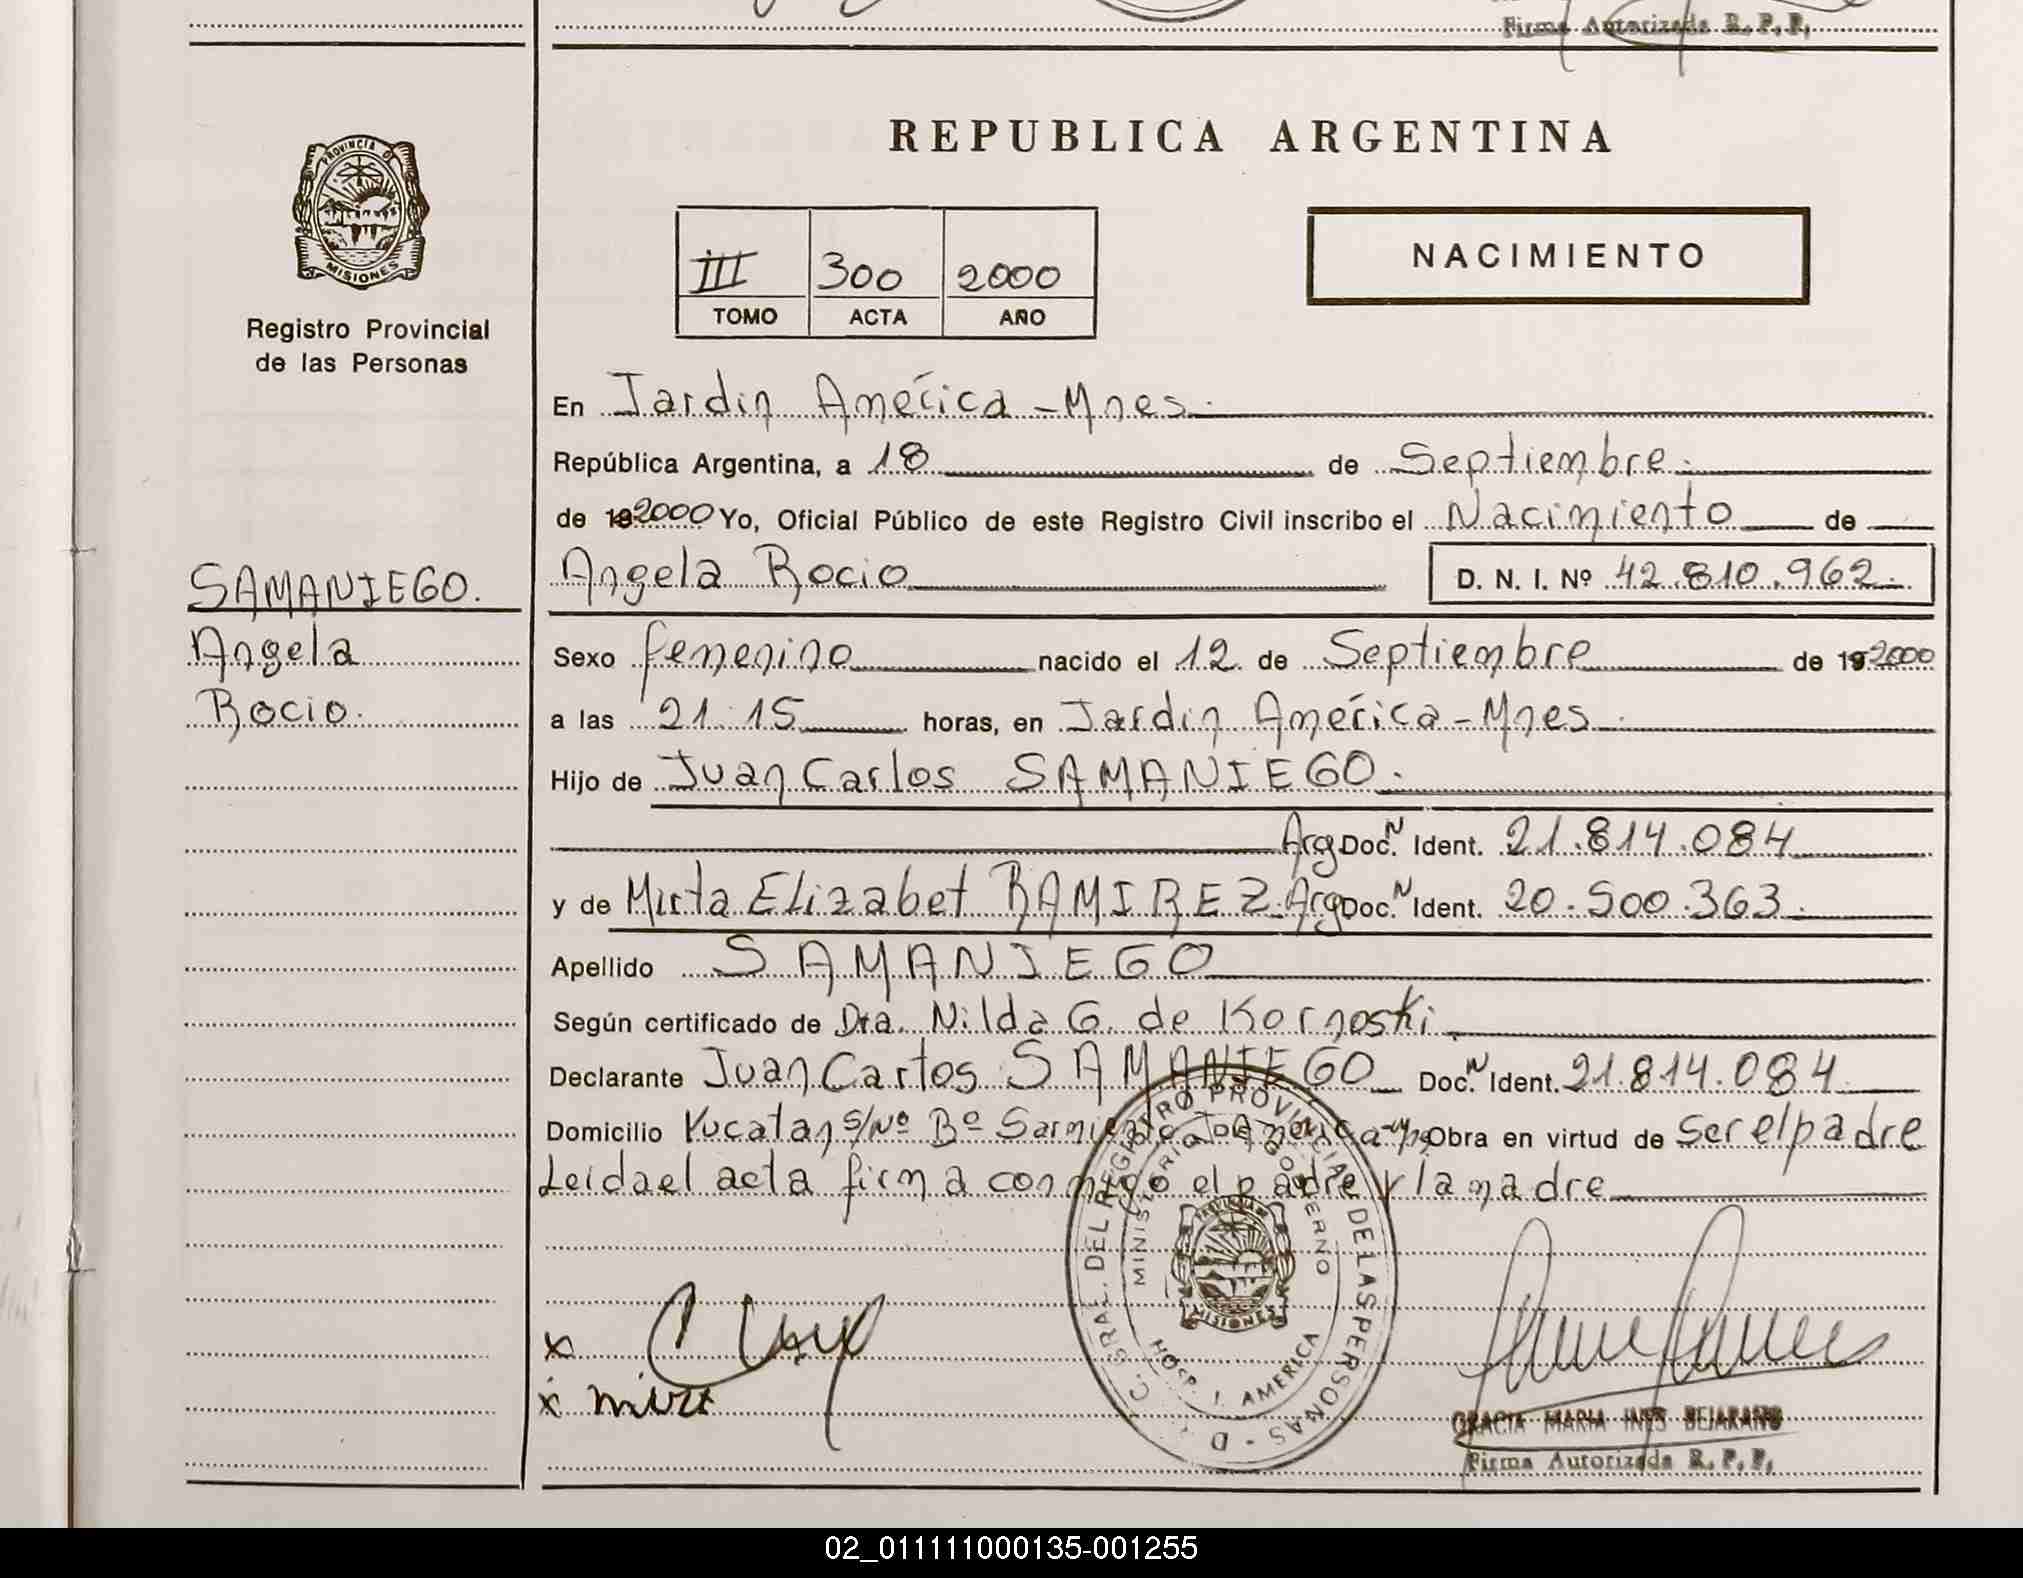 Firma Autorizada R. P. P.
PROVINCIA DE
MISIONES
Registro Provincial
de las Personas
SAMANIEGO.
Angela
Rocio.
REPUBLICA ARGENTINA
III 300 2000
TOMO ACTA AÑO
NACIMIENTO
En Jardin América - Mnes.
República Argentina, a 18 de Septiembre.
de 192000 Yo, Oficial Público de este Registro Civil inscribo el Nacimiento de
Angela Rocio D. N. I. Nº 42.810.962.
Sexo femenino nacido el 12 de Septiembre de 192000
a las 21:15 horas, en Jardin América - Mnes.
Hijo de Juan Carlos SAMANIEGO.
Arg Doc. N Ident. 21.814.084
y de Mirta Elizabet RAMIREZ. Arg Doc. N Ident. 20.500.363.
Apellido SAMANIEGO
Según certificado de Dra. Nilda G. de Kornoski.
Declarante Juan Carlos SAMANIEGO Doc. N Ident. 21.814.084
Domicilio Yucatan S/Nº Bº Sarmiento América Obra en virtud de ser el padre
Leida el acta firma conmigo el padre y la madre
C. GRAL. DEL REGISTRO PROVINCIAL DE LAS PERSONAS - D
MINISTERIO DE GOBIERNO
HOSP. J. AMERICA
MISIONES
x
x mirta
GRACIA MARIA INES BEJARANO
Firma Autorizada R. P. P.
02_011111000135-001255